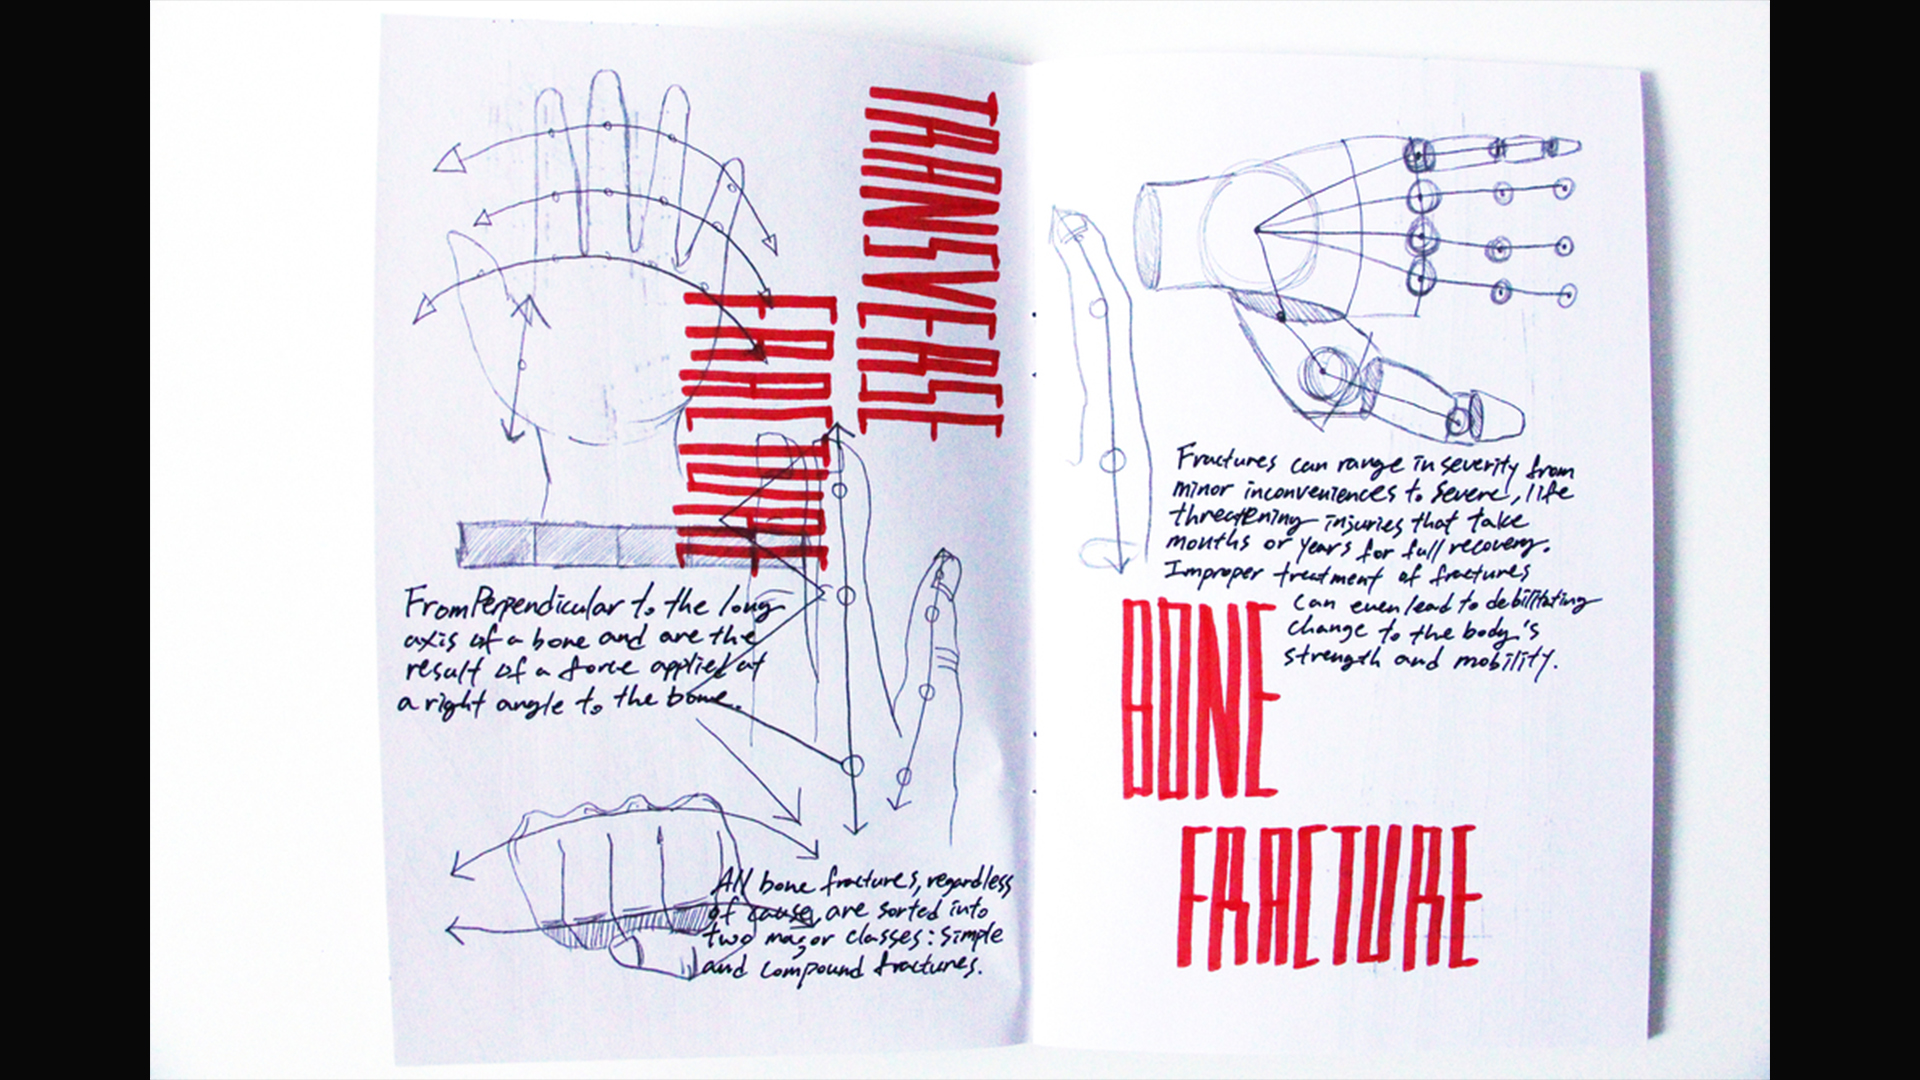 TRANSVERSE
FRACTURE
From Perpendicular to the long
axis of a bone and are the
result of a force applied at
a right angle to the bone.
All bone fractures, regardless
of cause, are sorted into
two major classes: Simple
and compound fractures.
Fractures can range in severity from
minor inconveniences to severe, life
threatening injuries that take
months or years for full recovery.
Improper treatment of fractures
can even lead to debilitating
change to the body's
strength and mobility.
BONE
FRACTURE